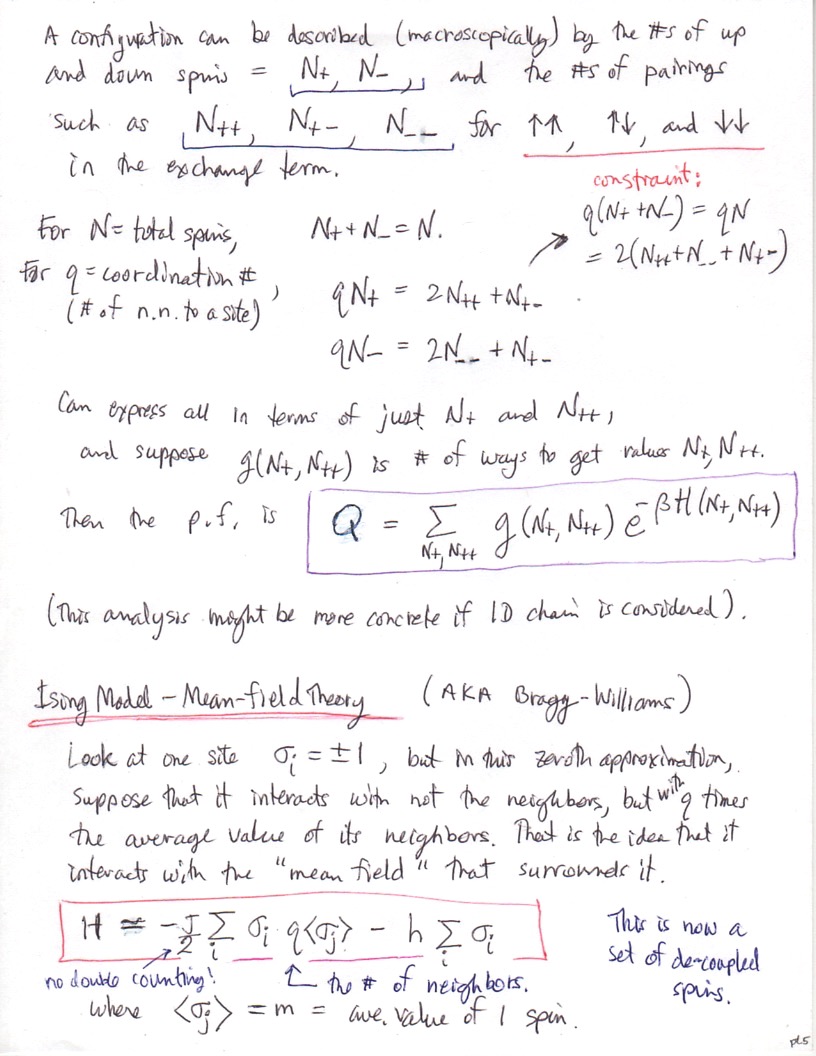 A configuration can be described (macroscopically) by the #s of up
and down spins = N₊, N₋, and the #s of pairings
such as N₊₊, N₊₋, N₋₋ for ↑↑, ↑↓, and ↓↓
in the exchange term.
constraint:
q(N₊ + N₋) = qN
= 2(N₊₊ + N₋₋ + N₊₋)
For N = total spins, N₊ + N₋ = N.
For q = coordination #,
(# of n.n. to a site)
qN₊ = 2N₊₊ + N₊₋
qN₋ = 2N₋₋ + N₊₋
Can express all in terms of just N₊ and N₊₊,
and suppose g(N₊, N₊₊) is # of ways to get values N₊, N₊₊.
Then the p.f. is Q = Σ_{N₊, N₊₊} g(N₊, N₊₊) e^{-βH(N₊, N₊₊)}
(This analysis might be more concrete if 1D chain is considered).
Ising Model – Mean-field Theory (AKA Bragg-Williams)
Look at one site σᵢ = ±1, but in this zeroth approximation,
suppose that it interacts with not the neighbors, but with q times
the average value of its neighbors. That is the idea that it
interacts with the "mean field" that surrounds it.
H ≃ -J/2 Σᵢ σᵢ q⟨σⱼ⟩ - h Σᵢ σᵢ
This is now a
set of de-coupled
spins.
no double counting! the # of neighbors.
where ⟨σⱼ⟩ = m = ave. value of 1 spin.
p1.5